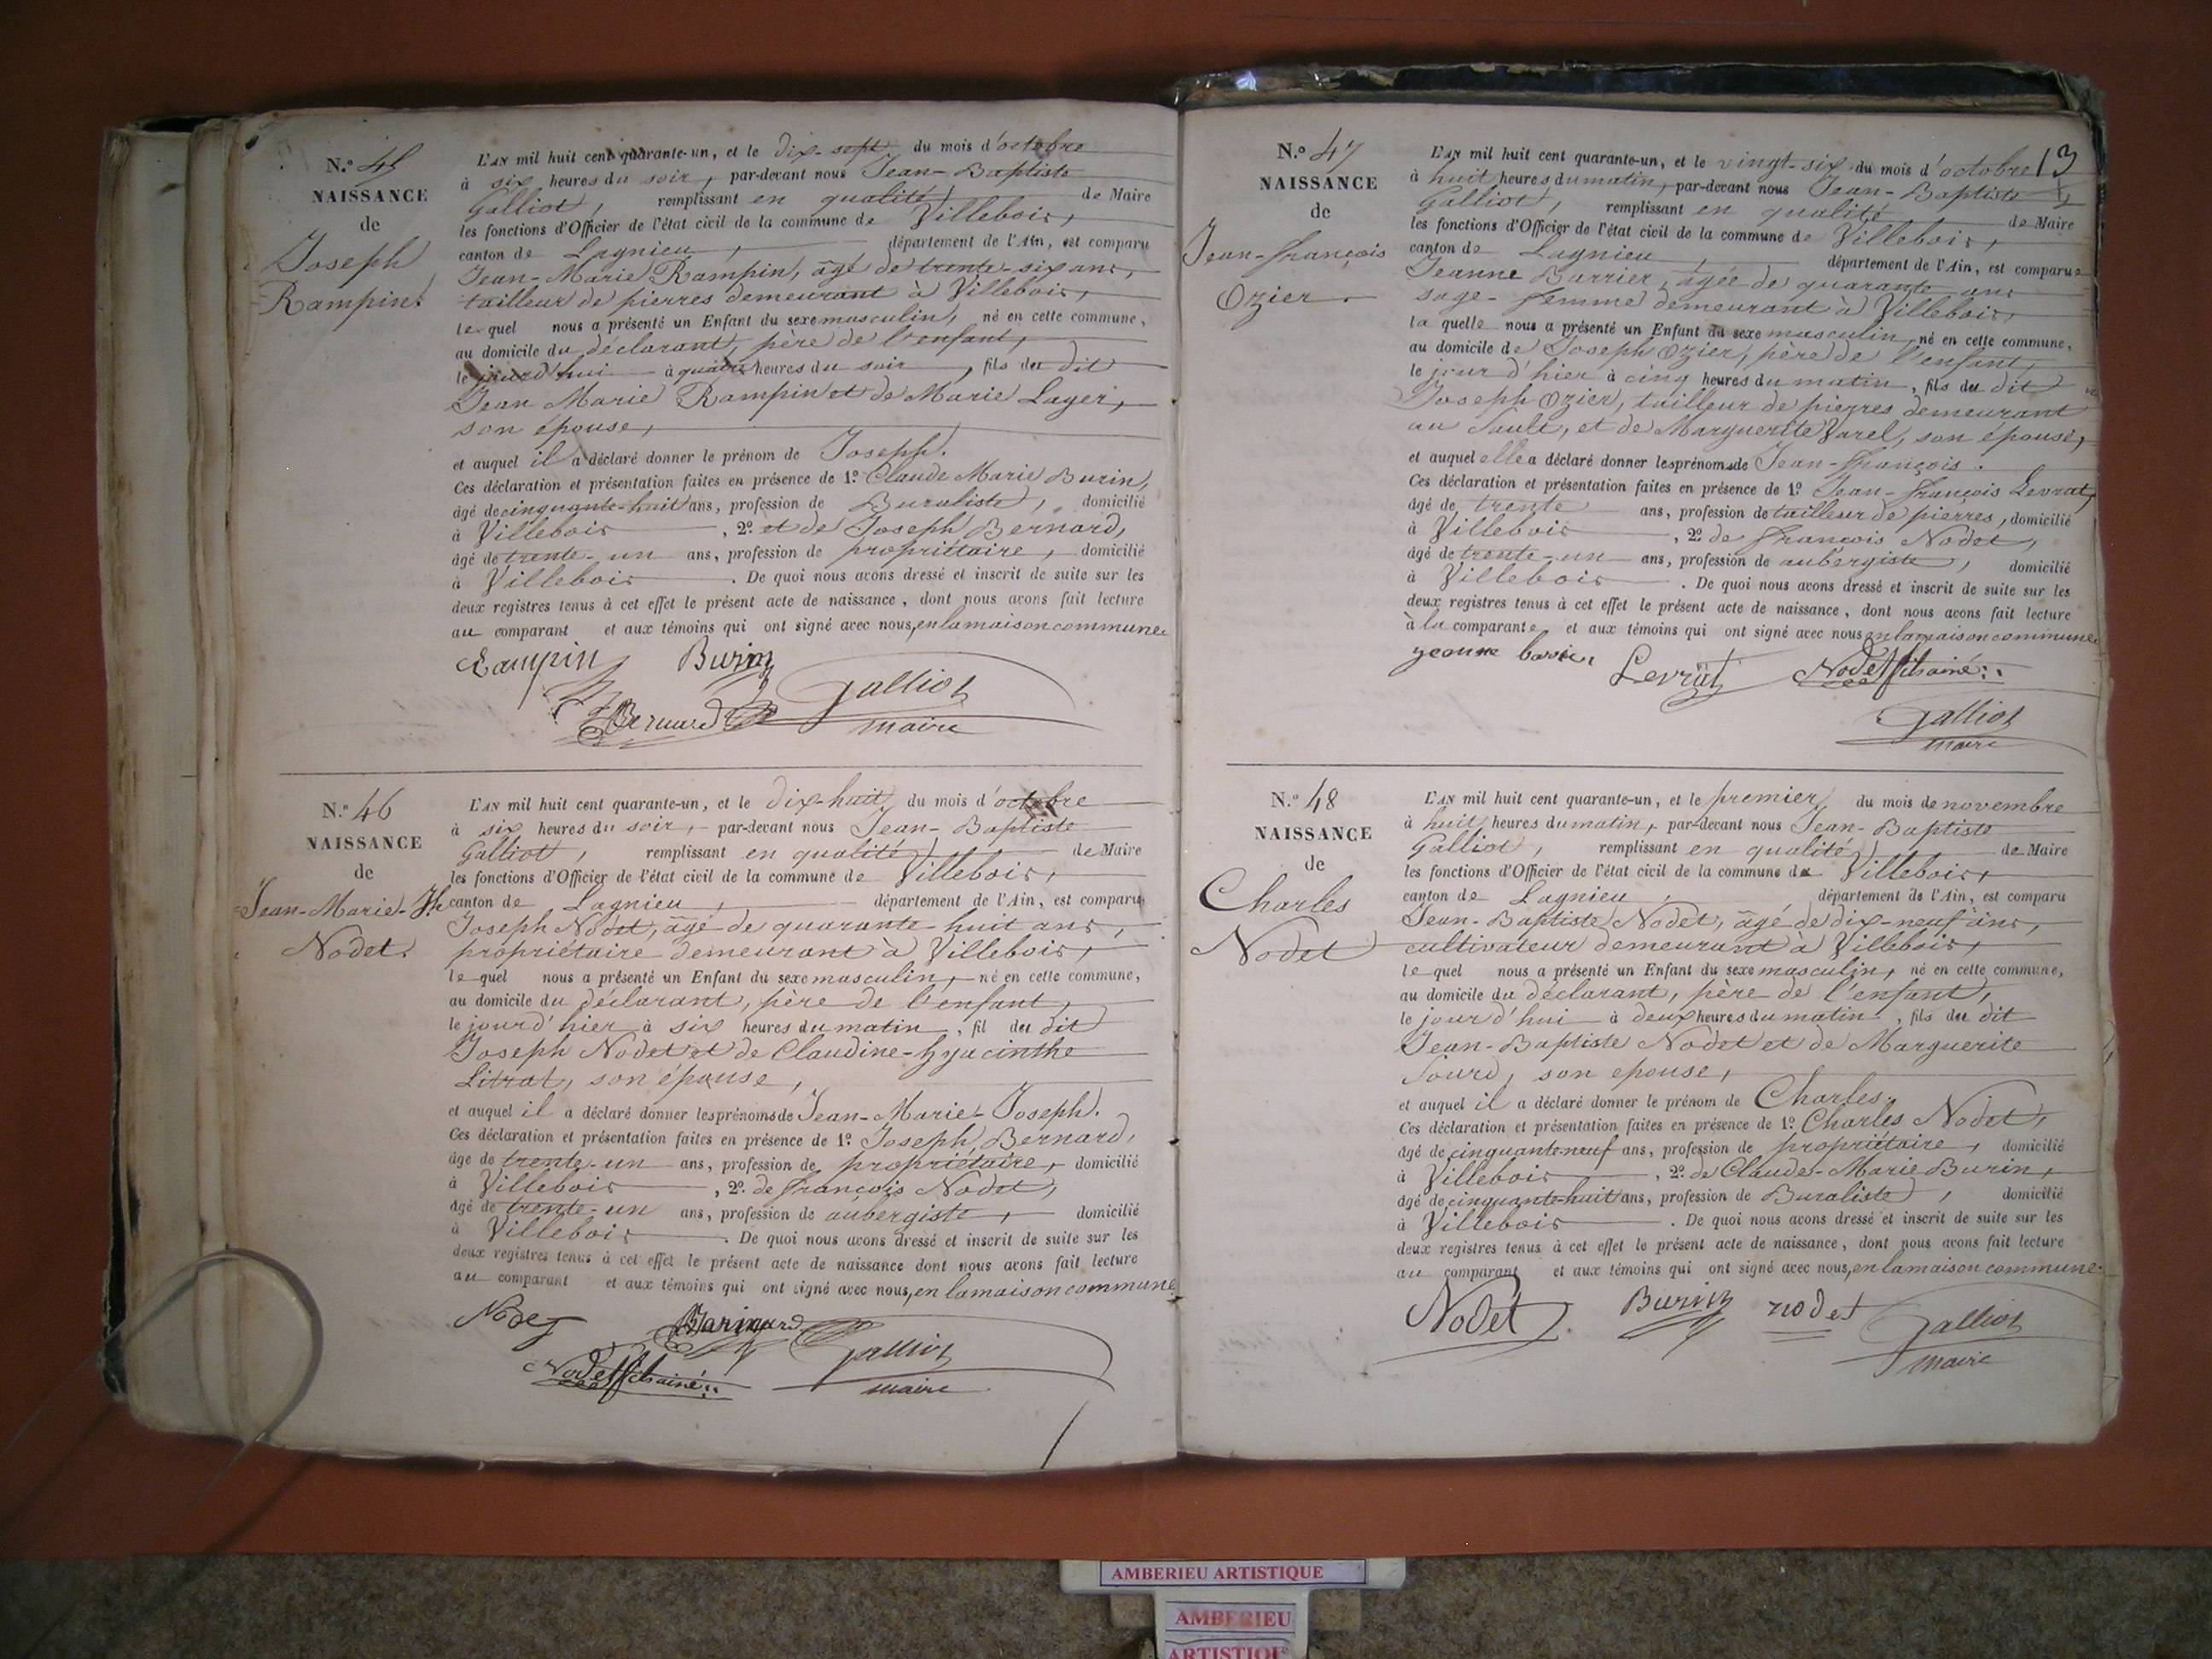 N.º 45
NAISSANCE
de
Joseph
Rampin.
L'AN mil huit cent quarante-un, et le dix-sept du mois d'octobre
à six heures du soir, par-devant nous Jean-Baptiste
Galliot, remplissant en qualité de Maire
les fonctions d'Officier de l'état civil de la commune de Villebois,
canton de Lagnieu, département de l'Ain, est comparu
Jean-Marie Rampin, âgé de trente-six ans,
tailleur de pierres demeurant à Villebois,
le quel nous a présenté un Enfant du sexe masculin, né en cette commune,
au domicile du déclarant, père de l'enfant,
le jourd'hui à quatre heures du soir, fils du dit
Jean Marie Rampin et de Marie Layer,
son épouse,
et auquel il a déclaré donner le prénom de Joseph.
Ces déclaration et présentation faites en présence de 1.º Claude Marie Burin,
âgé de cinquante-huit ans, profession de Buraliste, domicilié
à Villebois, 2.º et de Joseph Bernard,
âgé de trente-un ans, profession de propriétaire, domicilié
à Villebois. De quoi nous avons dressé et inscrit de suite sur les
deux registres tenus à cet effet le présent acte de naissance, dont nous avons fait lecture
au comparant et aux témoins qui ont signé avec nous, en la maison commune
Rampin Burin
Bernard Galliot
maire
N.º 46
NAISSANCE
de
Jean-Marie-Jh
Nodet.
L'AN mil huit cent quarante-un, et le dix-huit du mois d'octobre
à six heures du soir, par-devant nous Jean-Baptiste
Galliot, remplissant en qualité de Maire
les fonctions d'Officier de l'état civil de la commune de Villebois,
canton de Lagnieu, département de l'Ain, est comparu
Joseph Nodet, âgé de quarante-huit ans,
propriétaire demeurant à Villebois,
le quel nous a présenté un Enfant du sexe masculin, né en cette commune,
au domicile du déclarant, père de l'enfant,
le jour d'hier à six heures du matin, fil du dit
Joseph Nodet et de Claudine-hyacinthe
Litrat, son épouse,
et auquel il a déclaré donner les prénoms de Jean-Marie-Joseph.
Ces déclaration et présentation faites en présence de 1.º Joseph Bernard,
âgé de trente-un ans, profession de propriétaire, domicilié
à Villebois, 2.º de françois Nodet,
âgé de trente-un ans, profession de aubergiste, domicilié
à Villebois. De quoi nous avons dressé et inscrit de suite sur les
deux registres tenus à cet effet le présent acte de naissance dont nous avons fait lecture
au comparant et aux témoins qui ont signé avec nous, en la maison commune
Nodet Bernard
Nodet fils ainé Galliot
maire
13
N.º 47
NAISSANCE
de
Jean-françois
Ozier.
L'AN mil huit cent quarante-un, et le vingt-six du mois d'octobre
à huit heures du matin, par-devant nous Jean-Baptiste
Galliot, remplissant en qualité de Maire
les fonctions d'Officier de l'état civil de la commune de Villebois,
canton de Lagnieu, département de l'Ain, est comparue
Jeanne Barrier, âgée de quarante ans
sage-femme demeurant à Villebois,
la quelle nous a présenté un Enfant du sexe masculin, né en cette commune,
au domicile de Joseph Ozier, père de l'enfant,
le jour d'hier à cinq heures du matin, fils du dit
Joseph Ozier, tailleur de pierres demeurant
au Sault, et de Marguerite Varel, son épouse,
et auquel elle a déclaré donner les prénoms de Jean-françois.
Ces déclaration et présentation faites en présence de 1.º Jean-françois Levrat,
âgé de trente ans, profession de tailleur de pierres, domicilié
à Villebois, 2.º de françois Nodet,
âgé de trente-un ans, profession de aubergiste, domicilié
à Villebois. De quoi nous avons dressé et inscrit de suite sur les
deux registres tenus à cet effet le présent acte de naissance, dont nous avons fait lecture
à la comparante et aux témoins qui ont signé avec nous en la maison commune
Levrat Nodet fils ainé
Galliot
maire
N.º 48
NAISSANCE
de
Charles
Nodet
L'AN mil huit cent quarante-un, et le premier du mois de novembre
à huit heures du matin, par-devant nous Jean-Baptiste
Galliot, remplissant en qualité de Maire
les fonctions d'Officier de l'état civil de la commune de Villebois,
canton de Lagnieu, département de l'Ain, est comparu
Jean-Baptiste Nodet, âgé de dix-neuf ans,
cultivateur demeurant à Villebois,
le quel nous a présenté un Enfant du sexe masculin, né en cette commune,
au domicile du déclarant, père de l'enfant,
le jour d'hui à deux heures du matin, fils du dit
Jean-Baptiste Nodet et de Marguerite
Sourd, son epouse,
et auquel il a déclaré donner le prénom de Charles.
Ces déclaration et présentation faites en présence de 1.º Charles Nodet,
âgé de cinquante neuf ans, profession de propriétaire, domicilié
à Villebois, 2.º de Claude-Marie Burin,
âgé de cinquante-huit ans, profession de Buraliste, domicilié
à Villebois. De quoi nous avons dressé et inscrit de suite sur les
deux registres tenus à cet effet le présent acte de naissance, dont nous avons fait lecture
au comparant et aux témoins qui ont signé avec nous, en la maison commune.
Nodet Burin nodet Galliot
maire
AMBERIEU ARTISTIQUE
AMBERIEU
ARTISTIQUE